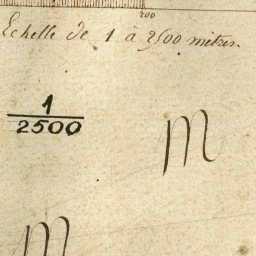 200
Echelle de 1 à 2500 mètres.
1
2500
M
M